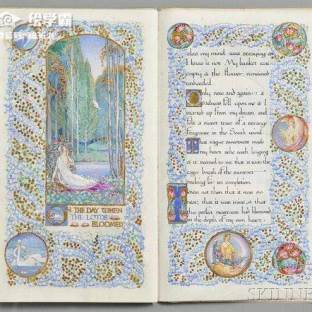 绘学霸
ON
THE DAY WHEN
THE LOTUS
BLOOMED
alas, my mind was straying &
I knew it not. My basket was
empty & the flower remained
unheeded.
Only now and again a
sadness fell upon me & I
started up from my dream, and
felt a sweet trace of a strange
fragrance in the south wind.
That vague sweetness made
my heart ache with longing
& it seemed to me that it was the
eager breath of the summer
seeking for its completion.
I knew not then that it was so
near, that it was mine, & that
this perfect sweetness had blossomed
in the depth of my own heart.
SKINNER